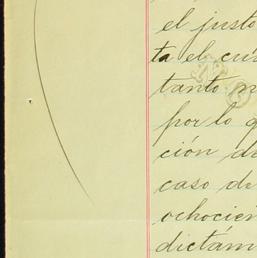 el justo
ta el cu
tanto m
por lo q
ción de
caso de
ochocien
dictám